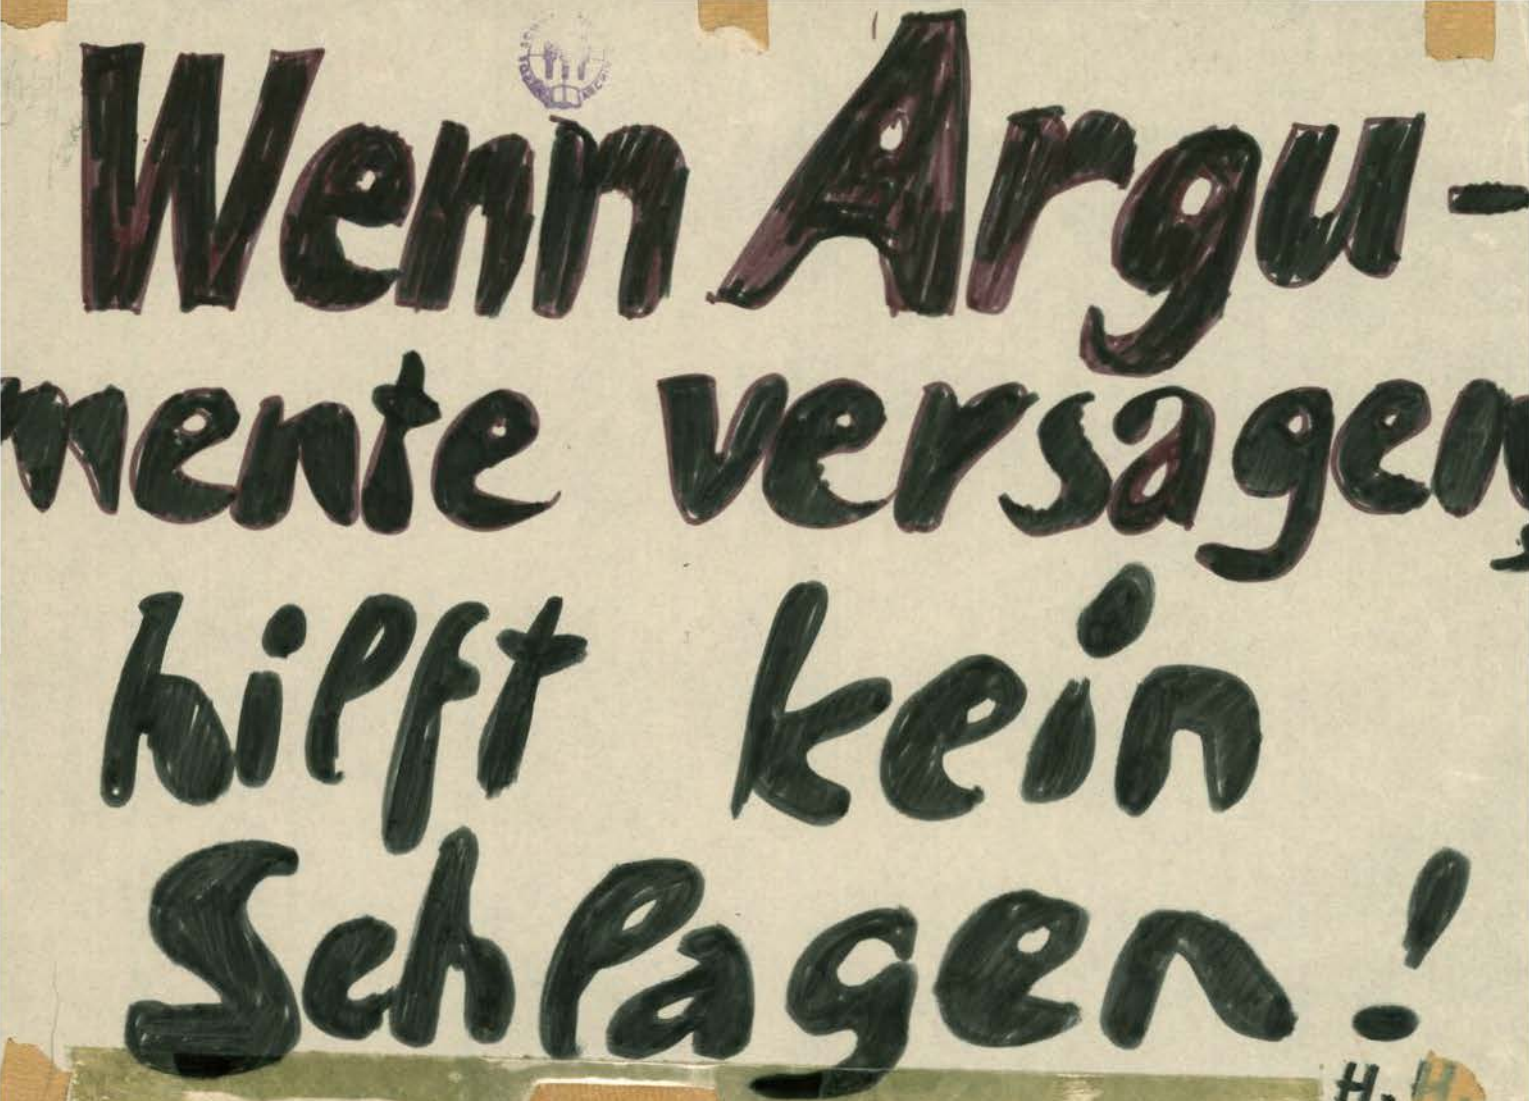 Wenn Argu-
mente versagen,
hilft kein
Schlagen!
H. H.